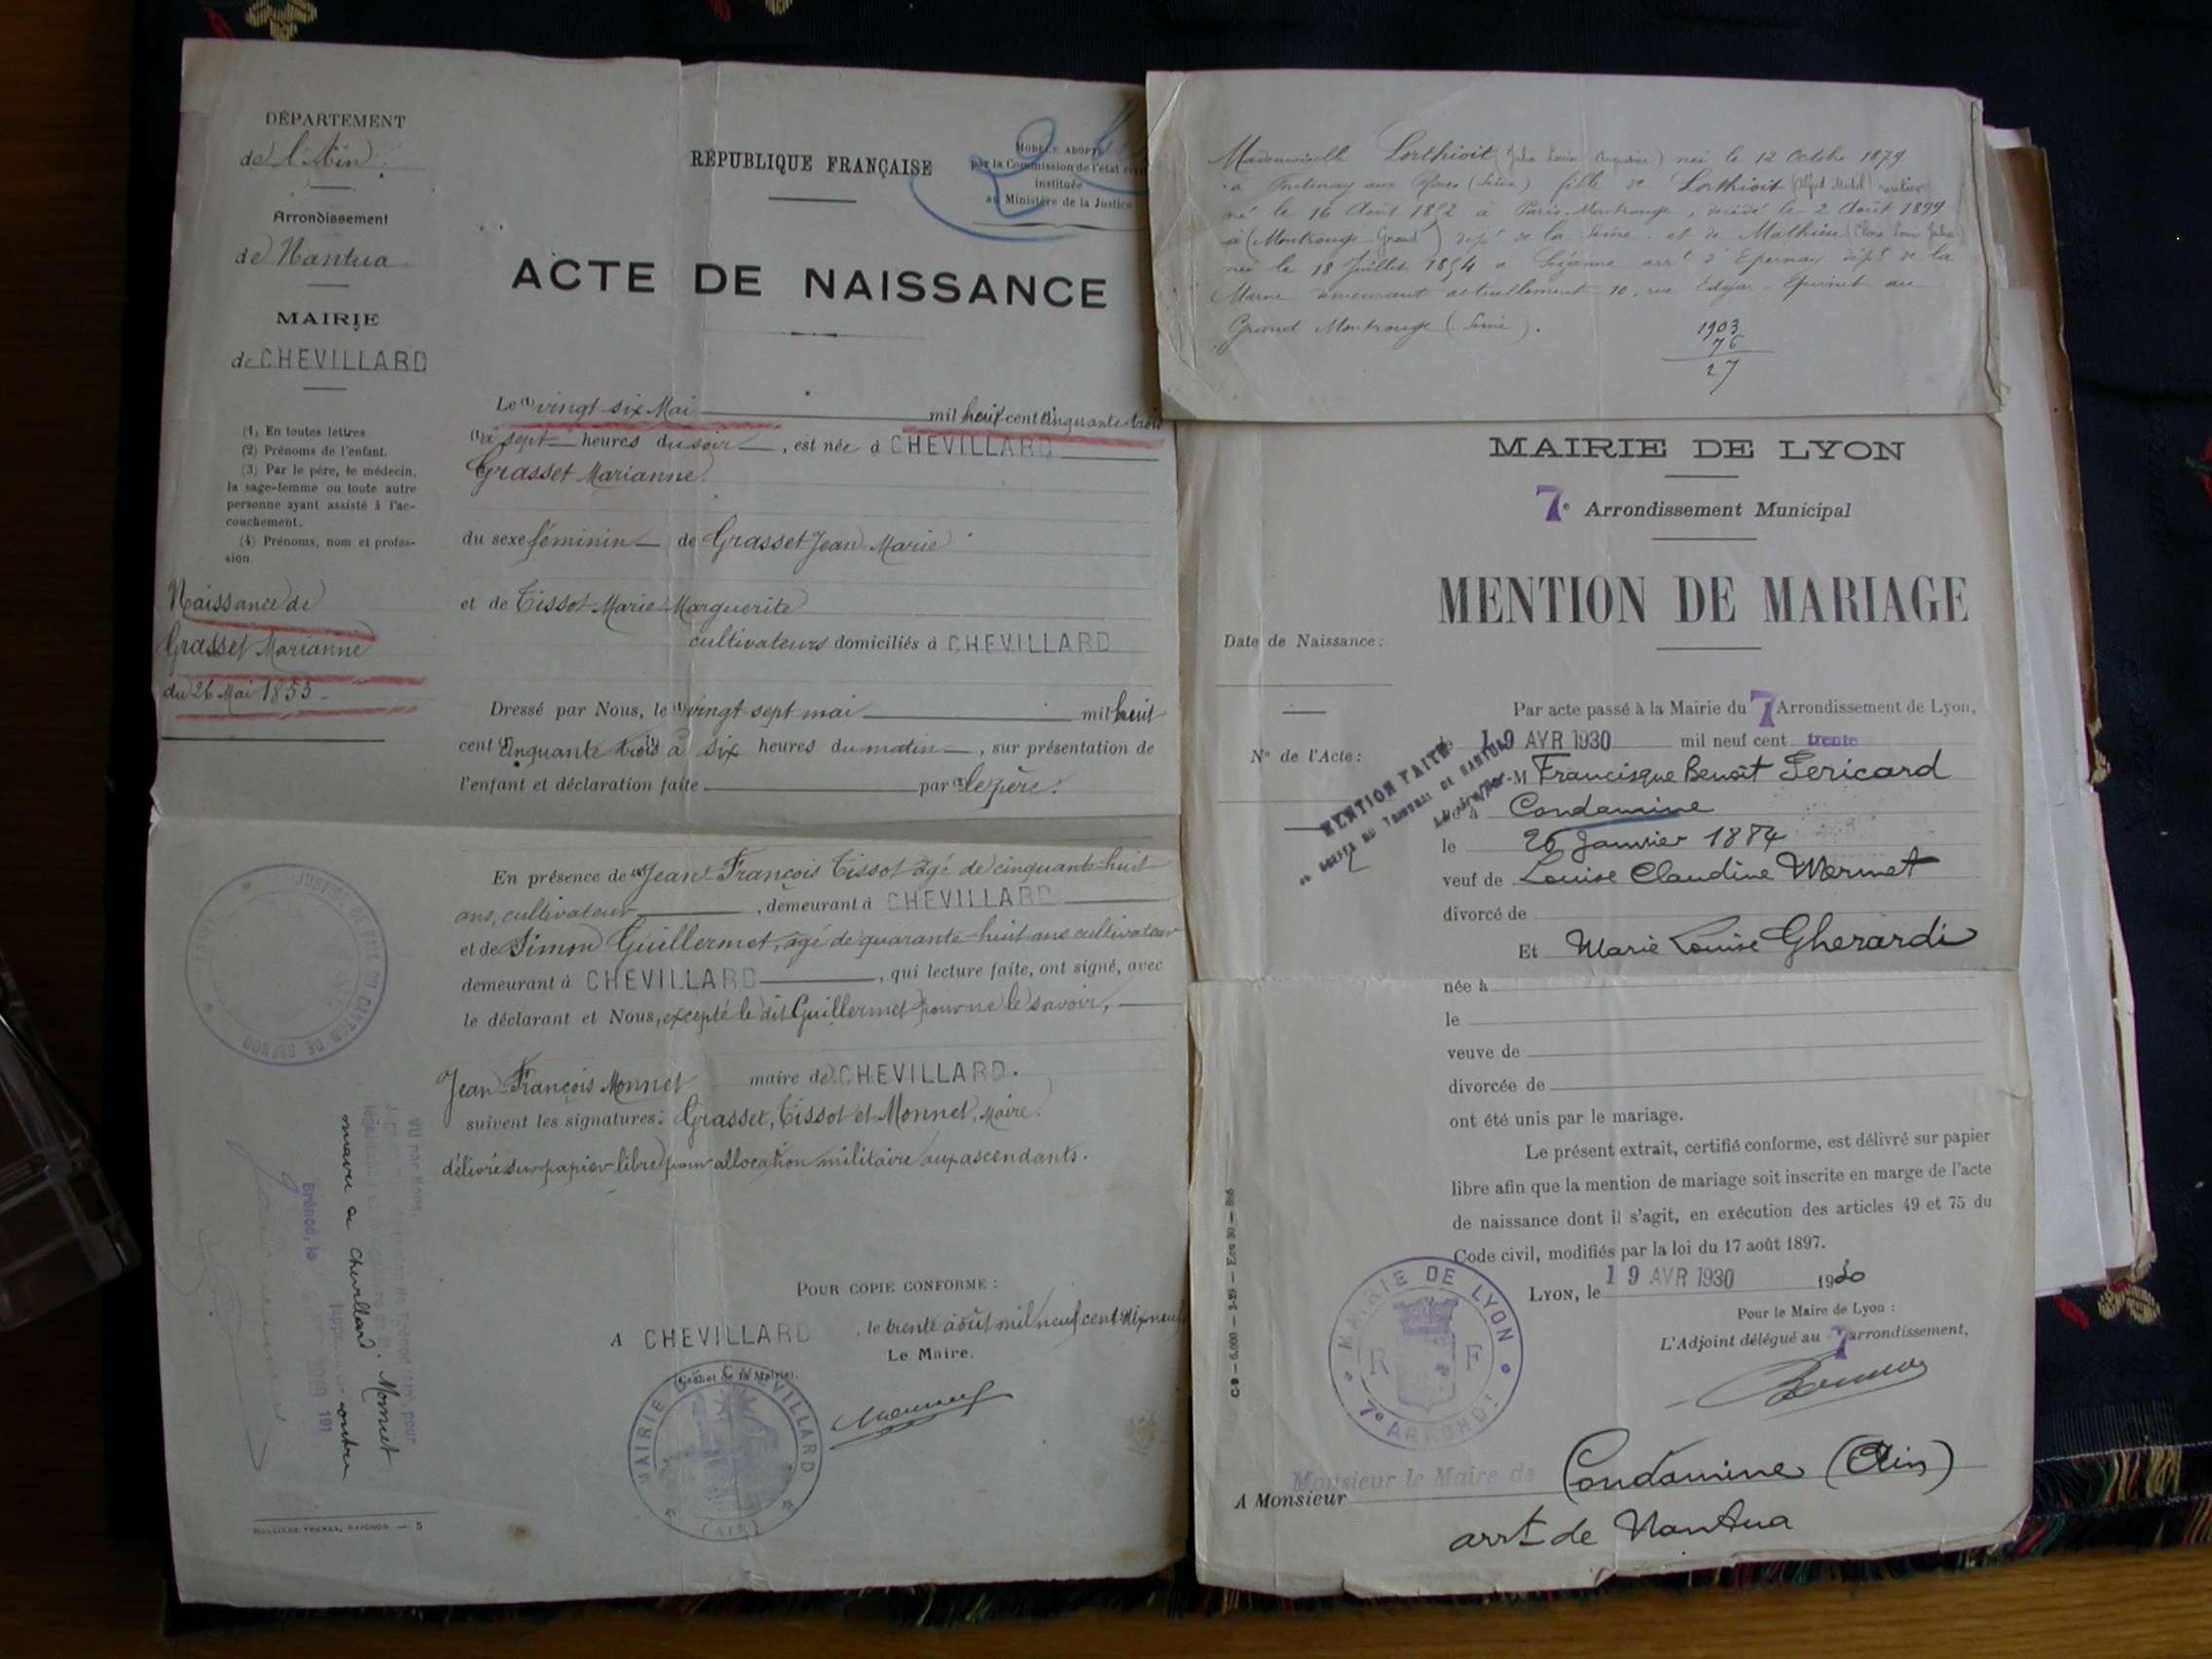 DÉPARTEMENT
de l'Ain
Arrondissement
de Nantua
MAIRIE
de CHEVILLARD
(1) En toutes lettres
(2) Prénoms de l'enfant.
(3) Par le père, le médecin,
la sage-femme ou toute autre
personne ayant assisté à l'ac-
couchement.
(4) Prénoms, nom et profes-
sion
Naissance de
Grasset Marianne
du 26 Mai 1853
RÉPUBLIQUE FRANÇAISE
MODÈLE ADOPTÉ
par la Commission de l'état civil
instituée
au Ministère de la Justice
ACTE DE NAISSANCE
Le (1) vingt six Mai mil huit cent cinquante trois
(1) à sept heures du soir, est née à CHEVILLARD
Grasset Marianne
du sexe féminin de Grasset Jean Marie
et de Tissot Marie Marguerite
cultivateurs domiciliés à CHEVILLARD
Dressé par Nous, le (1) vingt sept mai mil huit
cent cinquante trois (1) à six heures du matin, sur présentation de
l'enfant et déclaration faite par le père.
En présence de Jean François Tissot âgé de cinquante-huit
ans, cultivateur, demeurant à CHEVILLARD
et de Simon Guillermet, âgé de quarante-huit ans cultivateur
demeurant à CHEVILLARD, qui lecture faite, ont signé, avec
le déclarant et Nous, excepté le dit Guillermet pour ne le savoir,
Jean François Monnet maire de CHEVILLARD.
suivent les signatures: Grasset, Tissot et Monnet, Maire.
délivré sur papier libre pour allocation militaire aux ascendants.
POUR COPIE CONFORME :
A CHEVILLARD, le trente août mil neuf cent dix neuf
Le Maire.
(Cachet de la Mairie).
MAIRIE DE CHEVILLARD
(AIN)
JUSTICE DE PAIX DU CANTON DE BRÉNOD
VU par Nous,
maire de Chevillard. Monnet
Brénod, le
Mademoiselle Lorthioit (Julie Louise Augustine) née le 12 Octobre 1879
à Fontenay aux Roses (Seine) fille de Lorthioit (Alfred Michel) routier
né le 16 Août 1852 à Paris-Montrouge, décédé le 2 Août 1899
à (Montrouge Grand) dépt de la Seine. et de Mathieu (Clara Louise Julie)
née le 18 Juillet 1854 à Sézanne arrt d'Epernay dépt de la
Marne demeurant actuellement 10, rue Edgar-Quinet au
Grand Montrouge (Seine).
1903
76
27
MAIRIE DE LYON
7e Arrondissement Municipal
MENTION DE MARIAGE
Date de Naissance :
N° de l'Acte :
MENTION FAITE
au Greffe du Tribunal de Nantua
Par acte passé à la Mairie du 7 Arrondissement de Lyon,
le 19 AVR 1930 mil neuf cent trente
M Francisque Benoît Sericard
né à Condamine
le 26 Janvier 1884
veuf de Louise Claudine Mermet
divorcé de
Et Marie Louise Gherardi
née à
le
veuve de
divorcée de
ont été unis par le mariage.
Le présent extrait, certifié conforme, est délivré sur papier
libre afin que la mention de mariage soit inscrite en marge de l'acte
de naissance dont il s'agit, en exécution des articles 49 et 75 du
Code civil, modifiés par la loi du 17 août 1897.
LYON, le 19 AVR 1930 1930
Pour le Maire de Lyon :
L'Adjoint délégué au 7 arrondissement,
MAIRIE DE LYON
R F
7e ARRONDt
C-9 — 6.000 — 3-29 — Ecu 30 — 866
Monsieur le Maire de
A Monsieur Condamine (Ain)
arrt de Nantua